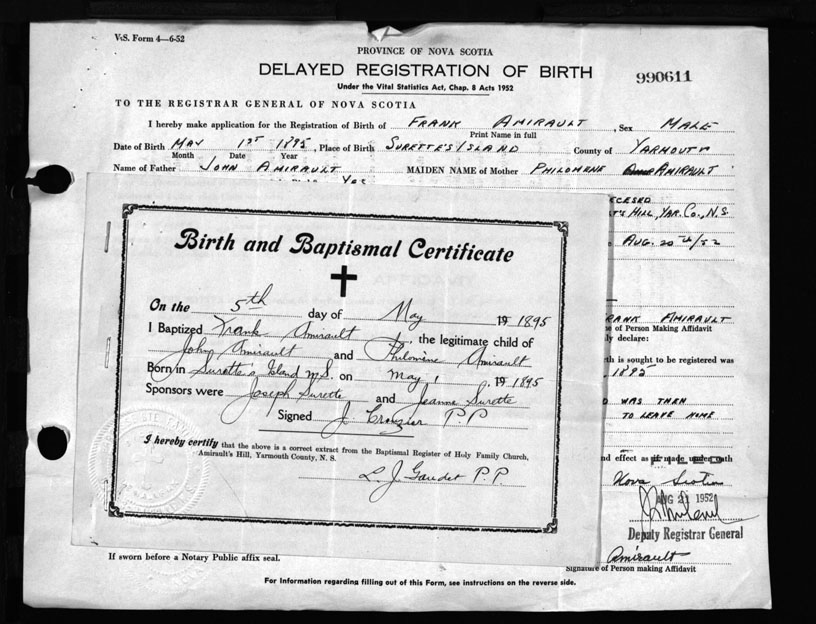 V.S. Form 4—6-52
PROVINCE OF NOVA SCOTIA
DELAYED REGISTRATION OF BIRTH
990611
Under the Vital Statistics Act, Chap. 8 Acts 1952
TO THE REGISTRAR GENERAL OF NOVA SCOTIA
I hereby make application for the Registration of Birth of FRANK AMIRAULT, Sex MALE
Print Name in full
Date of Birth MAY 1ST 1895, Place of Birth SURETTE'S ISLAND County of YARMOUTH
Month Date Year
Name of Father JOHN AMIRAULT MAIDEN NAME of Mother PHILOMENE AMIRAULT
Yes
T'S HILL, YAR. CO., N.S.
AUG. 20th/52
Birth and Baptismal Certificate
On the 5th day of May 19 1895
I Baptized Frank Amirault, the legitimate child of
John Amirault and Philomène Amirault
Born in Surette's Island N.S. on May 1, 19 1895
Sponsors were Joseph Surette and Jeanne Surette
Signed J. Crouzier P.P
I hereby certify that the above is a correct extract from the Baptismal Register of Holy Family Church,
Amirault's Hill, Yarmouth County, N. S.
L. J. Gaudet P.P.
RANK AMIRAULT
of Person Making Affidavit
ly declare:
th is sought to be registered was
1895
WAS THEN
TO LEAVE HOME
nd effect as if made under oath
FILED
Nova Scotia
AUG 21 1952
Deputy Registrar General
Amirault
Signature of Person making Affidavit
If sworn before a Notary Public affix seal.
For Information regarding filling out of this Form, see instructions on the reverse side.